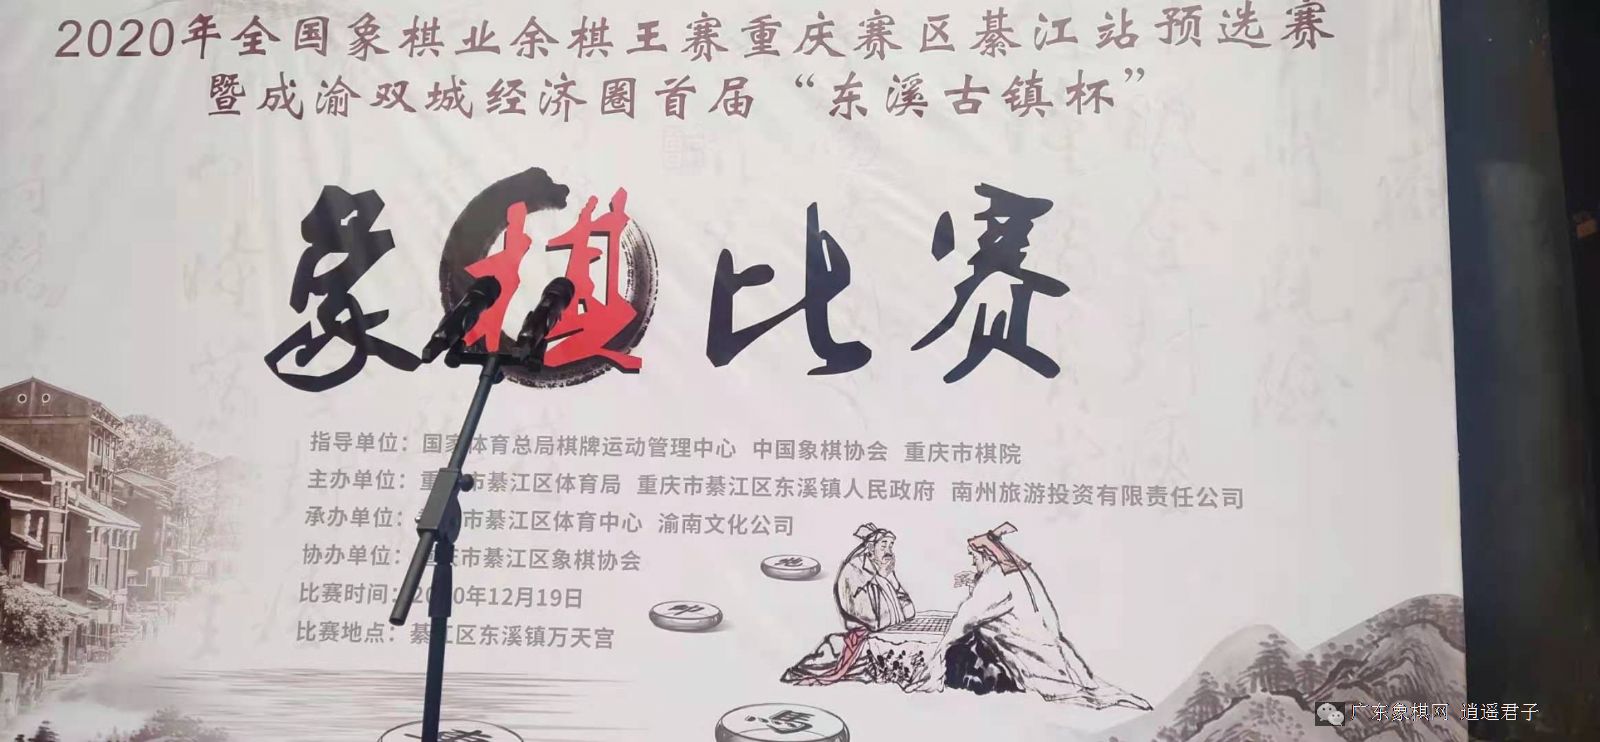 2020年全国象棋业余棋王赛重庆赛区綦江站预选赛
暨成渝双城经济圈首届“东溪古镇杯”
象棋比赛
指导单位：国家体育总局棋牌运动管理中心 中国象棋协会 重庆市棋院
主办单位：重庆市綦江区体育局 重庆市綦江区东溪镇人民政府 南州旅游投资有限责任公司
承办单位：重庆市綦江区体育中心 渝南文化公司
协办单位：重庆市綦江区象棋协会
比赛时间：2020年12月19日
比赛地点：綦江区东溪镇万天宫
馬
广东象棋网 逍遥君子